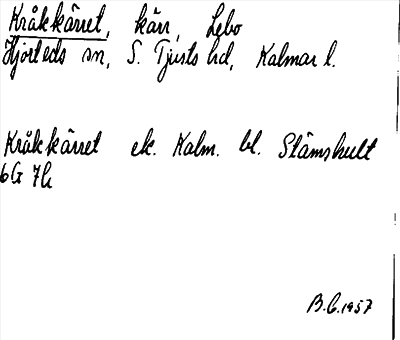 Kråkkärret, kärr, Lebo
Hjorteds sn, S. Tjusts hd, Kalmar l.
Kråkkärret ek. Kalm. bl. Slämshult
6G 7h
B.C. 1957